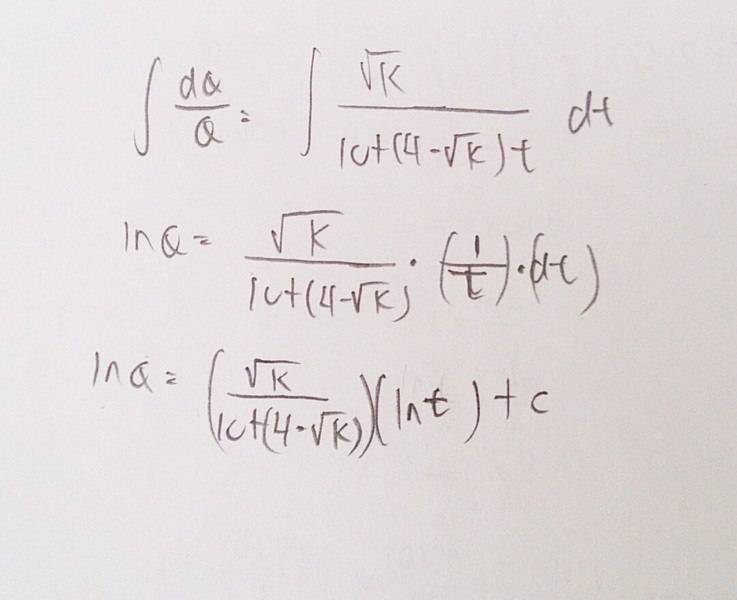 ∫ dQ/Q = ∫ √K / (10+(4-√K)t) dt
ln Q = √K / (10+(4-√K)) · (1/t) · (dt)
ln Q = (√K / (10+(4-√K)))(ln t) + c